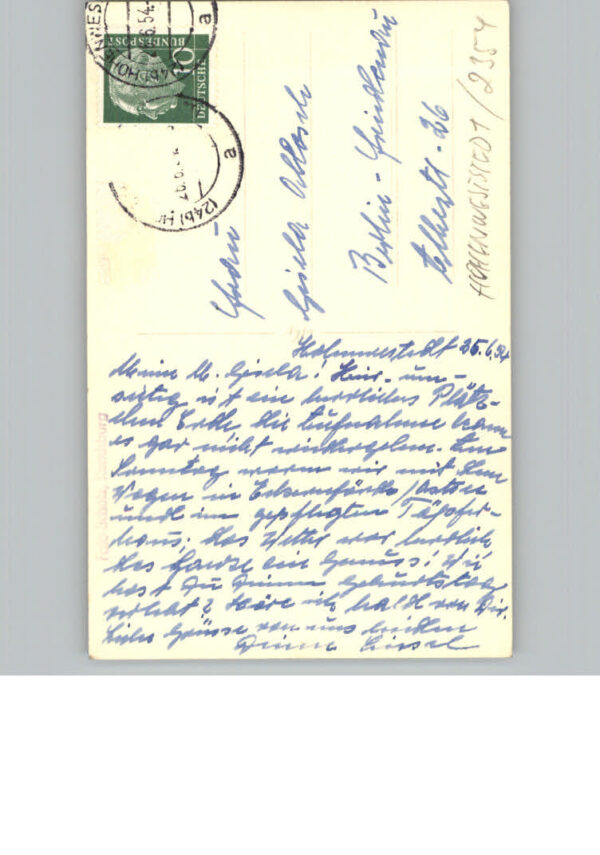 (24b) HOHENWES
6.54.
a
DEUTSCHE
BUNDESPOST
10
(24b) H
a
Frau
Gisela
Berlin-Friedenau
Elbestr. 26
HOHENWESTEDT / 2354
Hohenwestedt 25.6.54
Meine l. Gisela! Hier
ist ein herrliches Plätz-
chen Erde. Die Aufnahme kann
es gar nicht wiedergeben. Am
Sonntag waren wir mit dem
Wagen in Eckernförde/Ostsee
und im gepflegten Töpfer-
haus; das Wetter war herrlich
das Ganze ein Genuss! Wie
hast Du Deinen Geburtstag
verlebt? Höre ich bald von Dir.
Liebe Grüsse von uns beiden
Deine Liesel